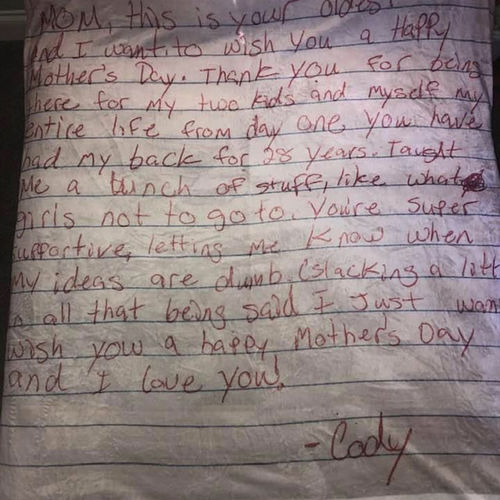 MOM, this is your oldest
and I want to wish you a Happy
Mother's Day. Thank you for being
there for my two kids and myself my
entire life from day one you have
had my back for 28 years. Taught
Me a bunch of stuff, like what
girls not to go to. You're super
supportive, letting me know when
my ideas are dumb. (slacking a litt
n all that being said I Just wan
wish you a happy Mother's Day
and I love you!
- Cody